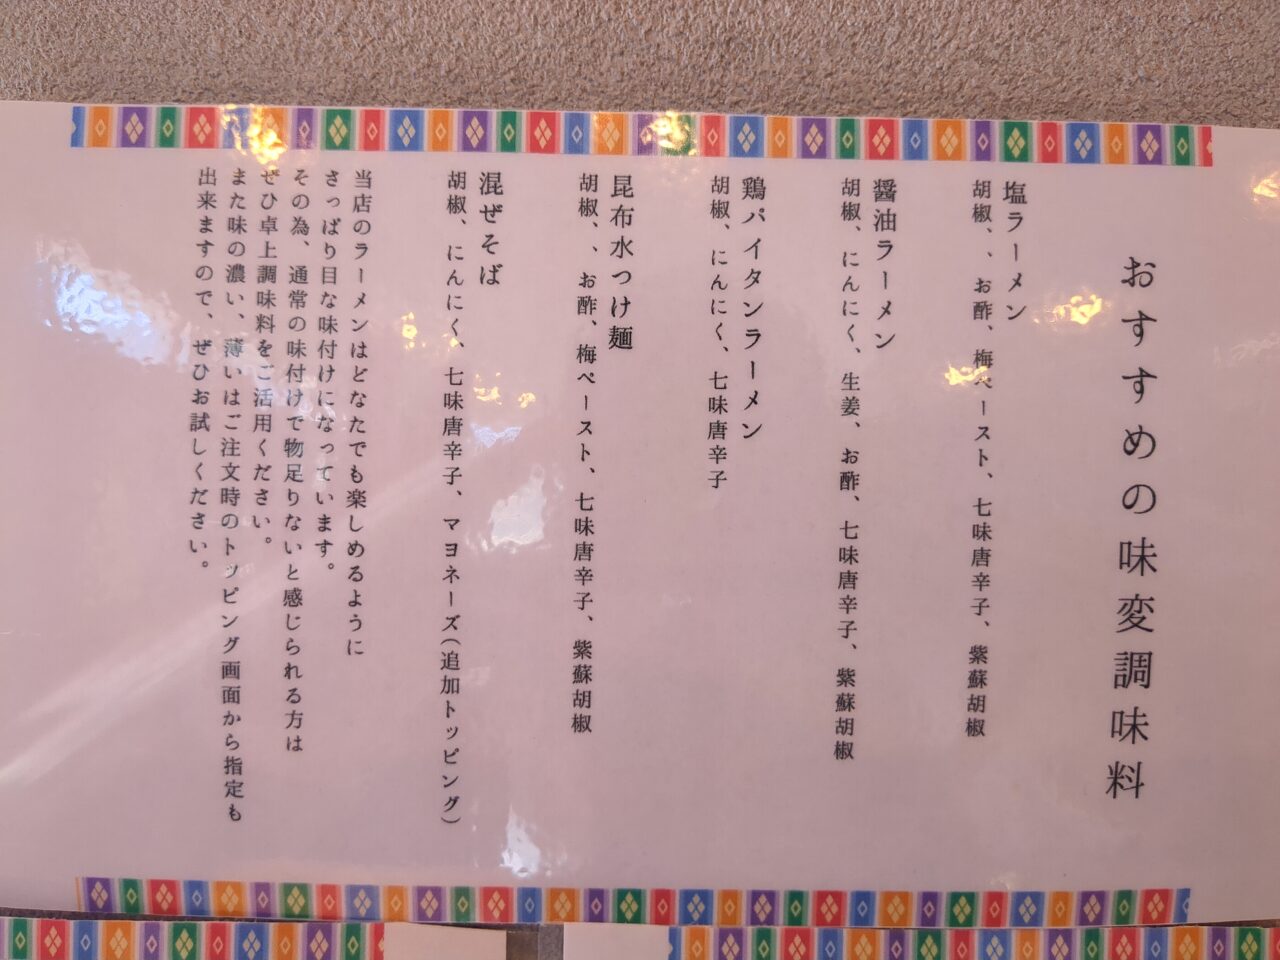 おすすめの味変調味料
塩ラーメン
胡椒、、お酢、梅ペースト、七味唐辛子、紫蘇胡椒
醤油ラーメン
胡椒、にんにく、生姜、お酢、七味唐辛子、紫蘇胡椒
鶏パイタンラーメン
胡椒、にんにく、七味唐辛子
昆布水つけ麺
胡椒、、お酢、梅ペースト、七味唐辛子、紫蘇胡椒
混ぜそば
胡椒、にんにく、七味唐辛子、マヨネーズ(追加トッピング)
当店のラーメンはどなたでも楽しめるように
さっぱり目な味付けになっています。
その為、通常の味付けで物足りないと感じられる方は
ぜひ卓上調味料をご活用ください。
また味の濃い、薄いはご注文時のトッピング画面から指定も
出来ますので、ぜひお試しください。